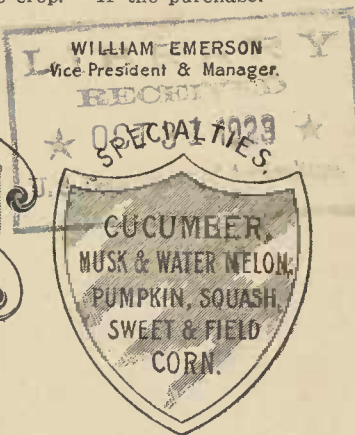 crop. If the purchase.
WILLIAM EMERSON
Vice President & Manager.
RECEIVED
★ OCT 31 1923 ★
SPECIALTIES.
CUCUMBER,
MUSK & WATER MELON,
PUMPKIN, SQUASH,
SWEET & FIELD
CORN.